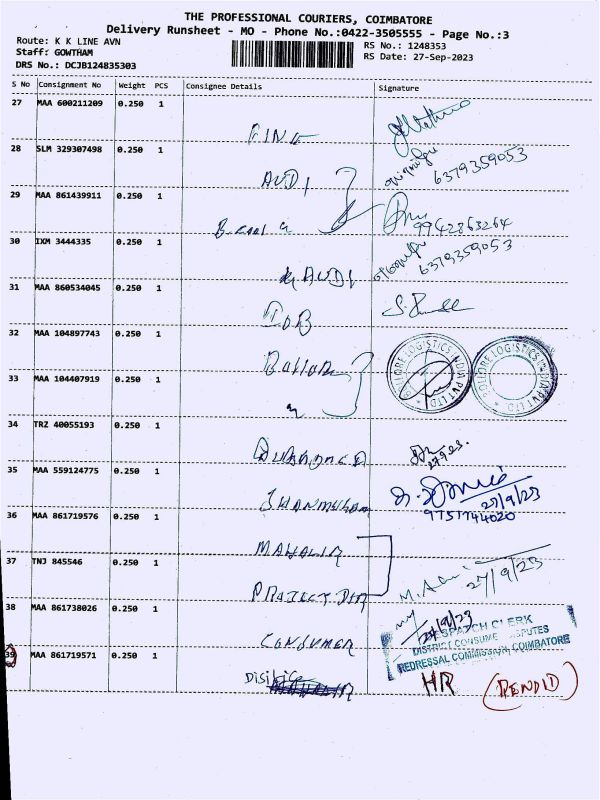 THE PROFESSIONAL COURIERS, COIMBATORE
Delivery Runsheet - MO - Phone No.:0422-3505555 - Page No.:3
Route: K K LINE AVN
RS No.: 1248353
Staff: GOWTHAM
RS Date: 27-Sep-2023
DRS No.: DCJB124835303
S No Consignment No Weight PCS Consignee Details Signature
27 MAA 600211209 0.250 1
28 SLM 329307498 0.250 1 AUDI 6379359053
29 MAA 861439911 0.250 1 9942863264
30 IXM 3444335 0.250 1 AUDI 6379359053
31 MAA 860534045 0.250 1 IOB
32 MAA 104897743 0.250 1 BOLLORE LOGISTICS INDIA PVT LTD BOLLORE LOGISTICS INDIA PVT LTD
33 MAA 104407919 0.250 1
34 TRZ 40055193 0.250 1 27923.
35 MAA 559124775 0.250 1 SHANMUGAM 27/9/23
9751744020
36 MAA 861719576 0.250 1 MAHALIR
37 TNJ 845546 0.250 1 PROJECT DIR 27/9/23
38 MAA 861738026 0.250 1 CONSUMER
DESPATCH CLERK
DISTRICT CONSUMER DISPUTES
REDRESSAL COMMISSION, COIMBATORE
39 MAA 861719571 0.250 1 HR